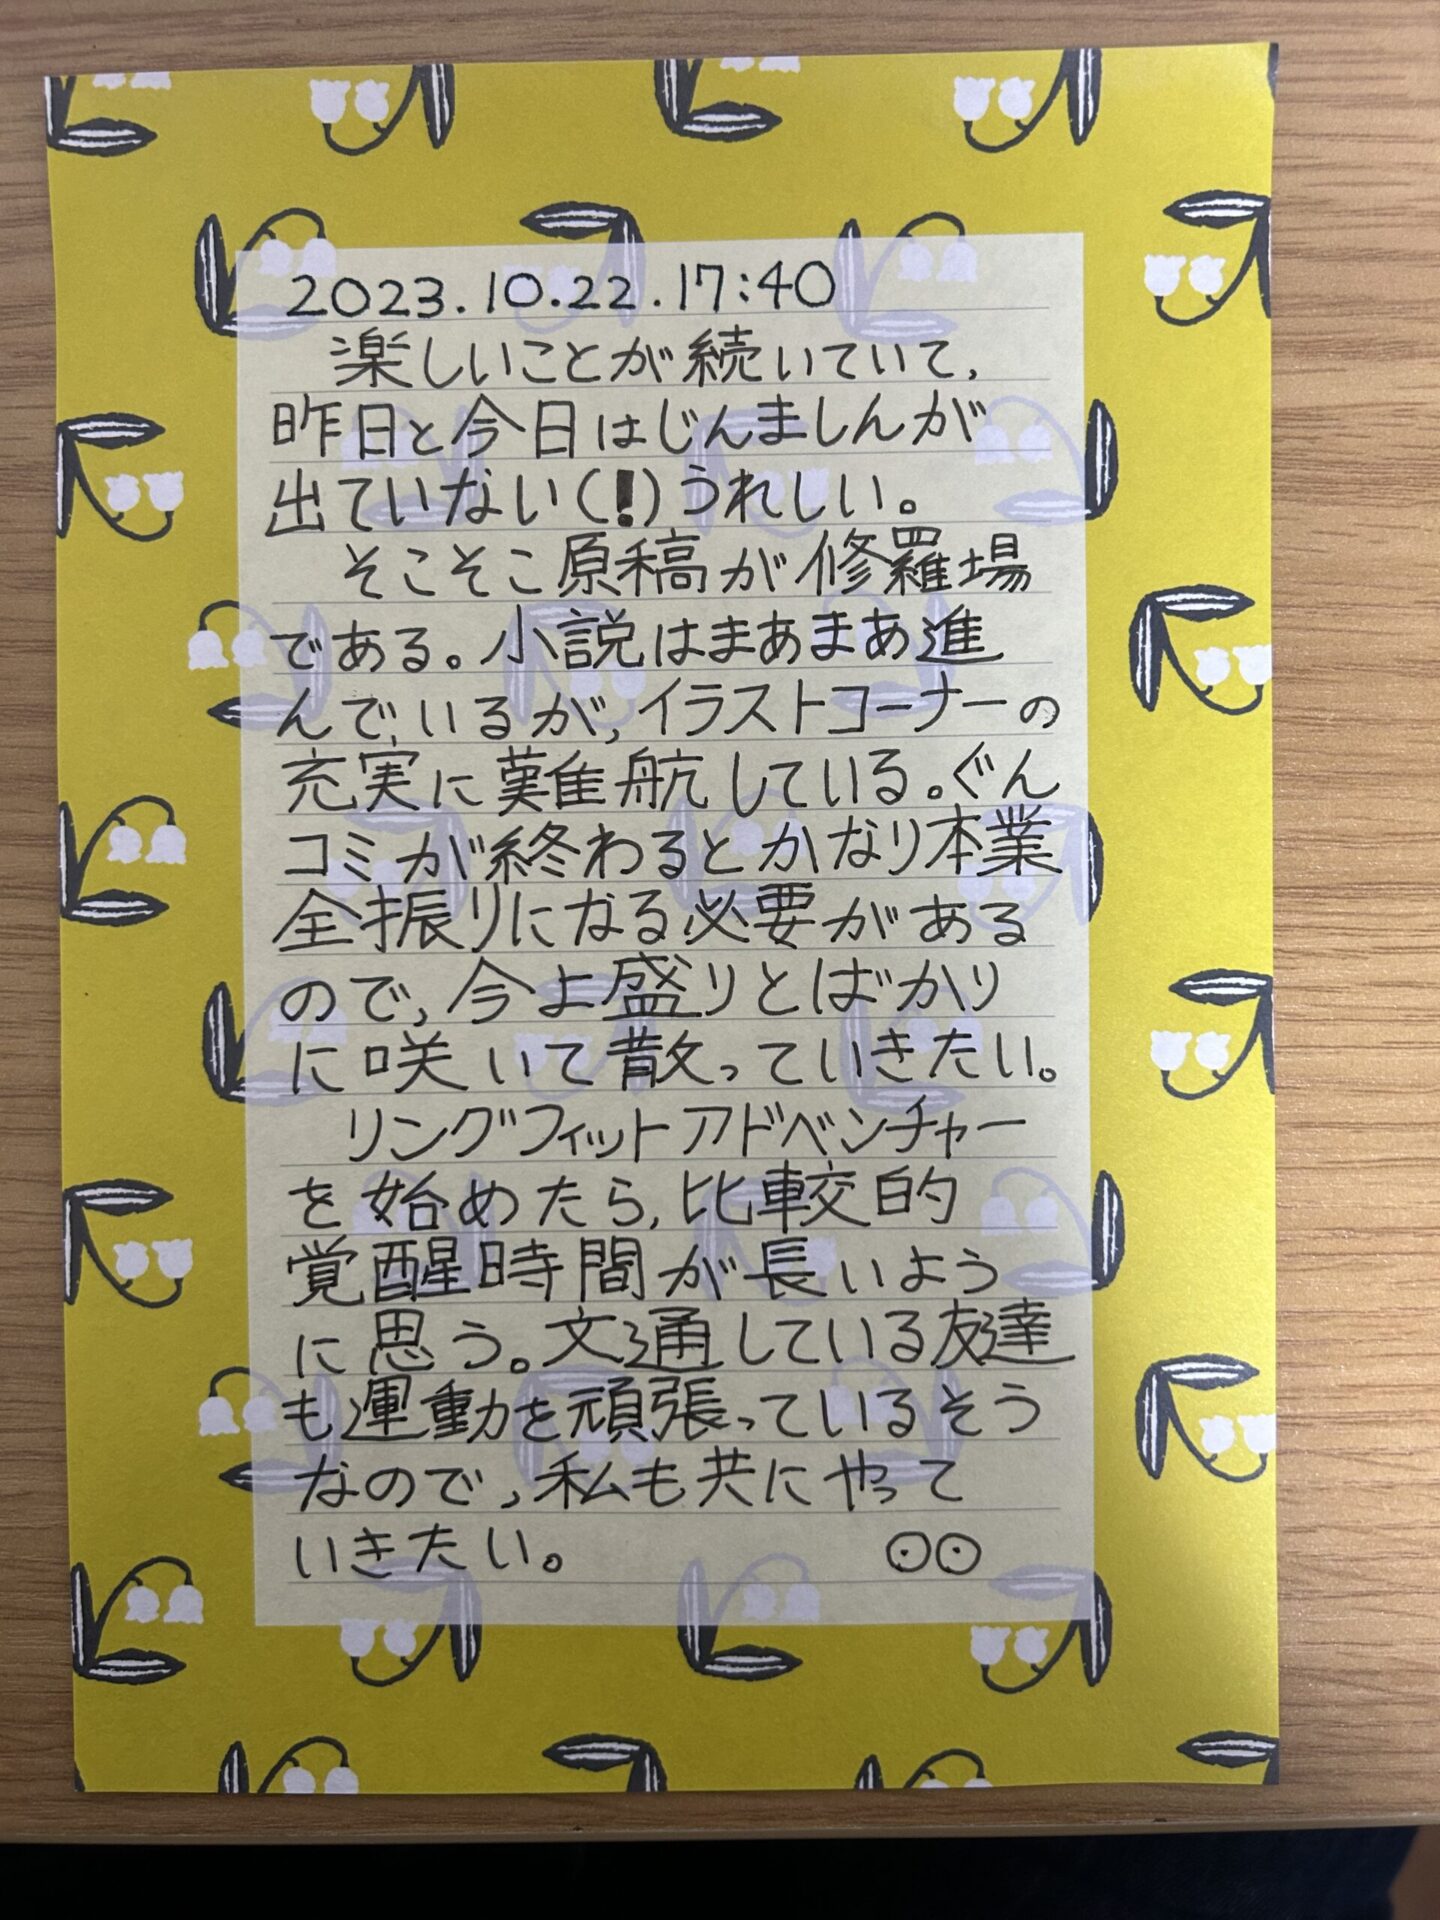 2023.10.22.17:40
楽しいことが続いていて,
昨日と今日はじんましんが
出ていない(!)うれしい。
そこそこ原稿が修羅場
である。小説はまあまあ進
んでいるが,イラストコーナーの
充実に難航している。ぐん
コミが終わるとかなり本業
全振りになる必要がある
ので,今よ盛りとばかり
に咲いて散っていきたい。
リングフィットアドベンチャー
を始めたら,比較的
覚醒時間が長いよう
に思う。文通している友達
も運動を頑張っているそう
なので,私も共にやって
いきたい。